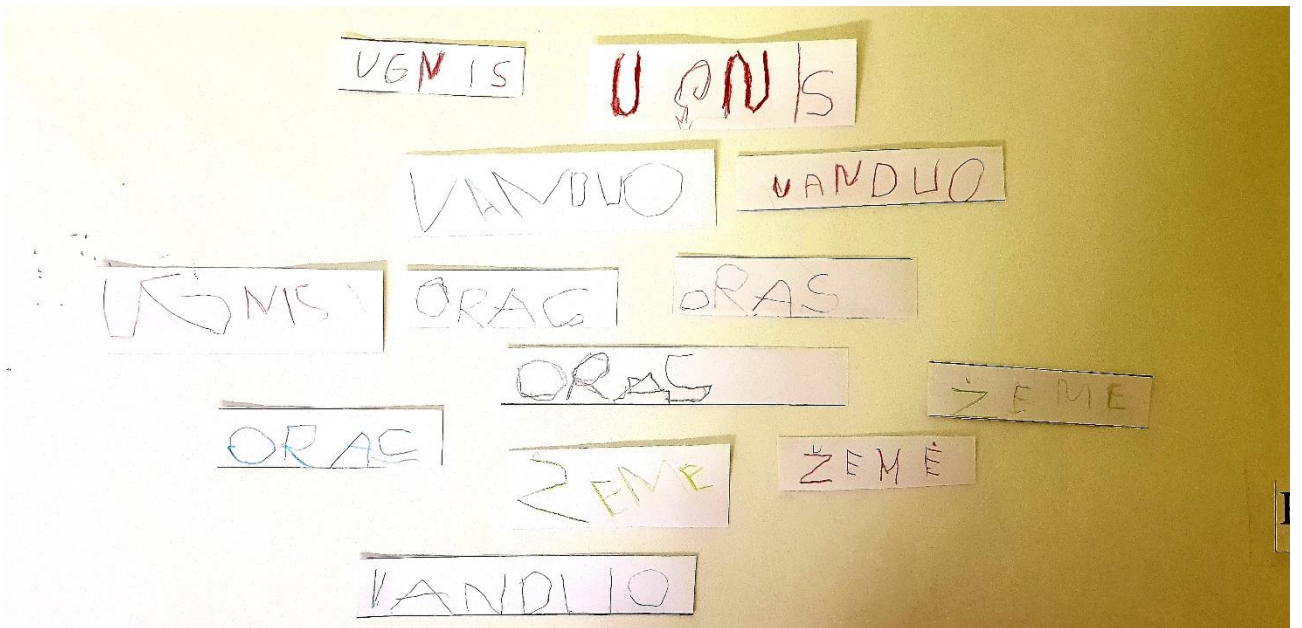 UGNIS UGNIS
VANDUO VANDUO
UGNIS ORAG ORAS
ORAG
ŻEME
ORAC
ŽEME ŽEMĖ
VANDUO